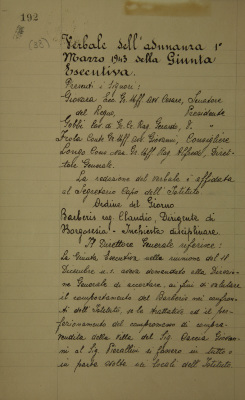 192
(28)
Verbale dell'adunanza 1°
Marzo 1943 della Giunta
Esecutiva.
Presenti i Signori:
Giovara Gr. Uff. Avv. Cesare, Senatore
del Regno, Presidente
Gobbi Cav. di Gr. Cr. Rag. V. "
Frola Conte Gr. Uff. Avv. Giovanni, Consigliere
Longo Comm. Gr. Uff. Rag. Alfredo, Diret-
tore Generale.
La redazione del verbale è affidata
al Segretario Capo dell'Istituto.
Ordine del Giorno
Barberis rag. Claudio, Dirigente di
Borgosesia - Inchiesta disciplinare.
Il Direttore Generale riferisce:
La Giunta Esecutiva nella riunione del
Dicembre u.s. aveva demandato alla Direzio-
ne Generale di accertare, ai fini di valutare
il comportamento del Barberis nei confron-
ti dell'Istituto, se le trattative ed il per-
fezionamento del compromesso di compra-
vendita della villa del Sig. Giovan-
ni al Sig. Pierallini si fossero in tutto o
in parte svolte nei locali dell'Istituto